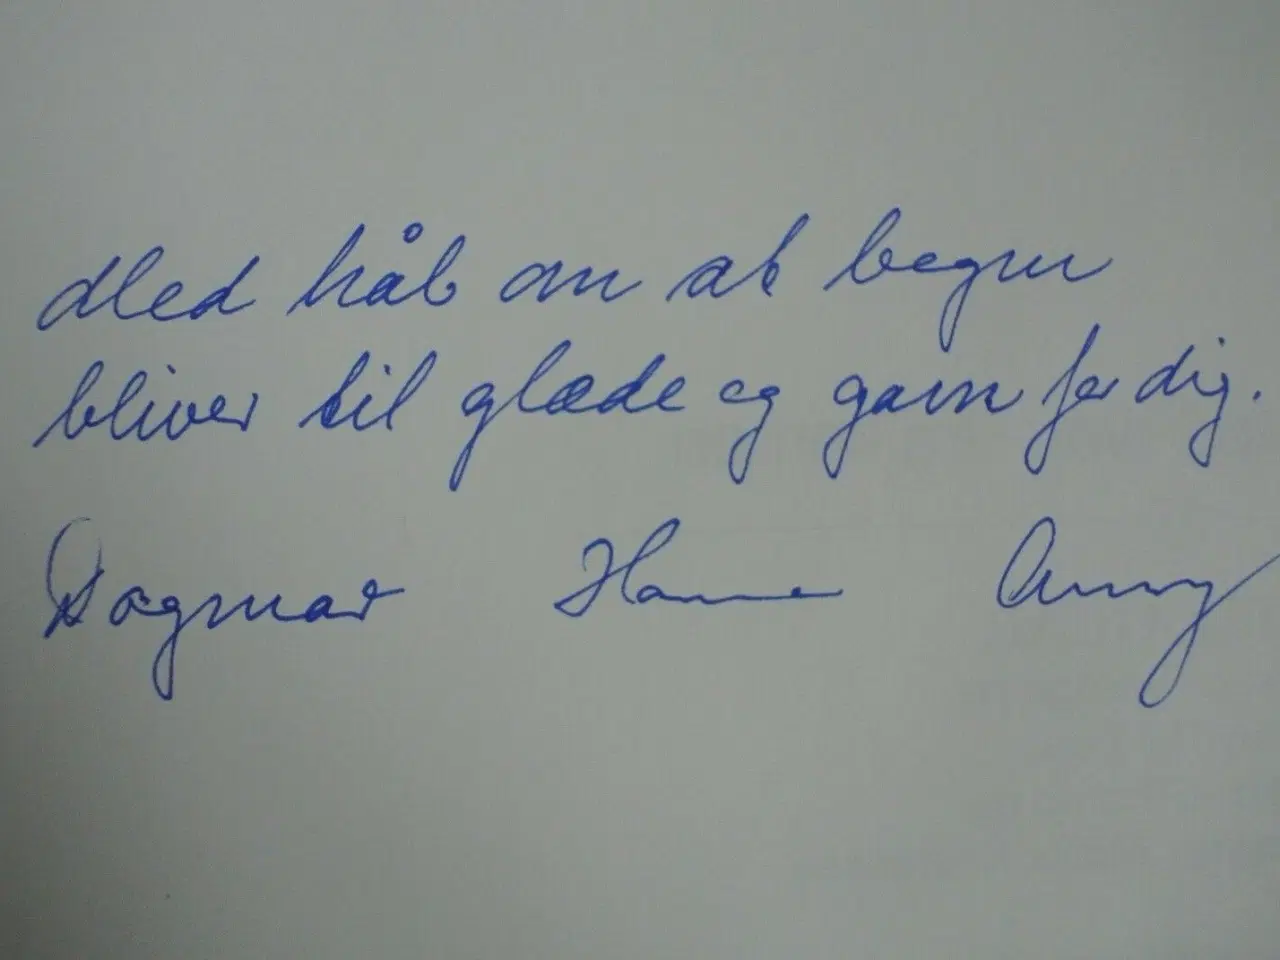 Med håb om at bogen
bliver til glæde og gavn for dig.
Dagmar Hanne Anny